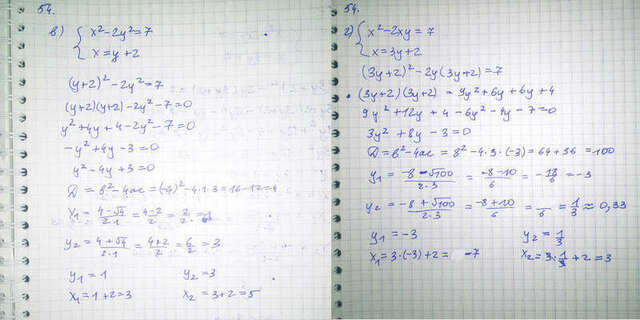 54.
в) { x² - 2y² = 7
x = y + 2
(y+2)² - 2y² = 7
(y+2)(y+2) - 2y² - 7 = 0
y² + 4y + 4 - 2y² - 7 = 0
-y² + 4y - 3 = 0
y² - 4y + 3 = 0
D = b² - 4ac = (-4)² - 4·1·3 = 16 - 12 = 4
y₁ = (4-√4)/(2·1) = (4-2)/2 = 2/2 = 1
y₂ = (4+√4)/(2·1) = (4+2)/2 = 6/2 = 3
y₁ = 1 y₂ = 3
x₁ = 1+2 = 3 x₂ = 3+2 = 5
54.
г) { x² - 2xy = 7
x = 3y + 2
(3y+2)² - 2y(3y+2) = 7
(3y+2)(3y+2) = 9y² + 6y + 6y + 4
9y² + 12y + 4 - 6y² - 4y - 7 = 0
3y² + 8y - 3 = 0
D = b² - 4ac = 8² - 4·3·(-3) = 64 + 36 = 100
y₁ = (-8-√100)/(2·3) = (-8-10)/6 = -18/6 = -3
y₂ = (-8+√100)/(2·3) = (-8+10)/6 = /6 = 1/3 ≈ 0,33
y₁ = -3 y₂ = 1/3
x₁ = 3·(-3)+2 = -7 x₂ = 3·1/3 + 2 = 3